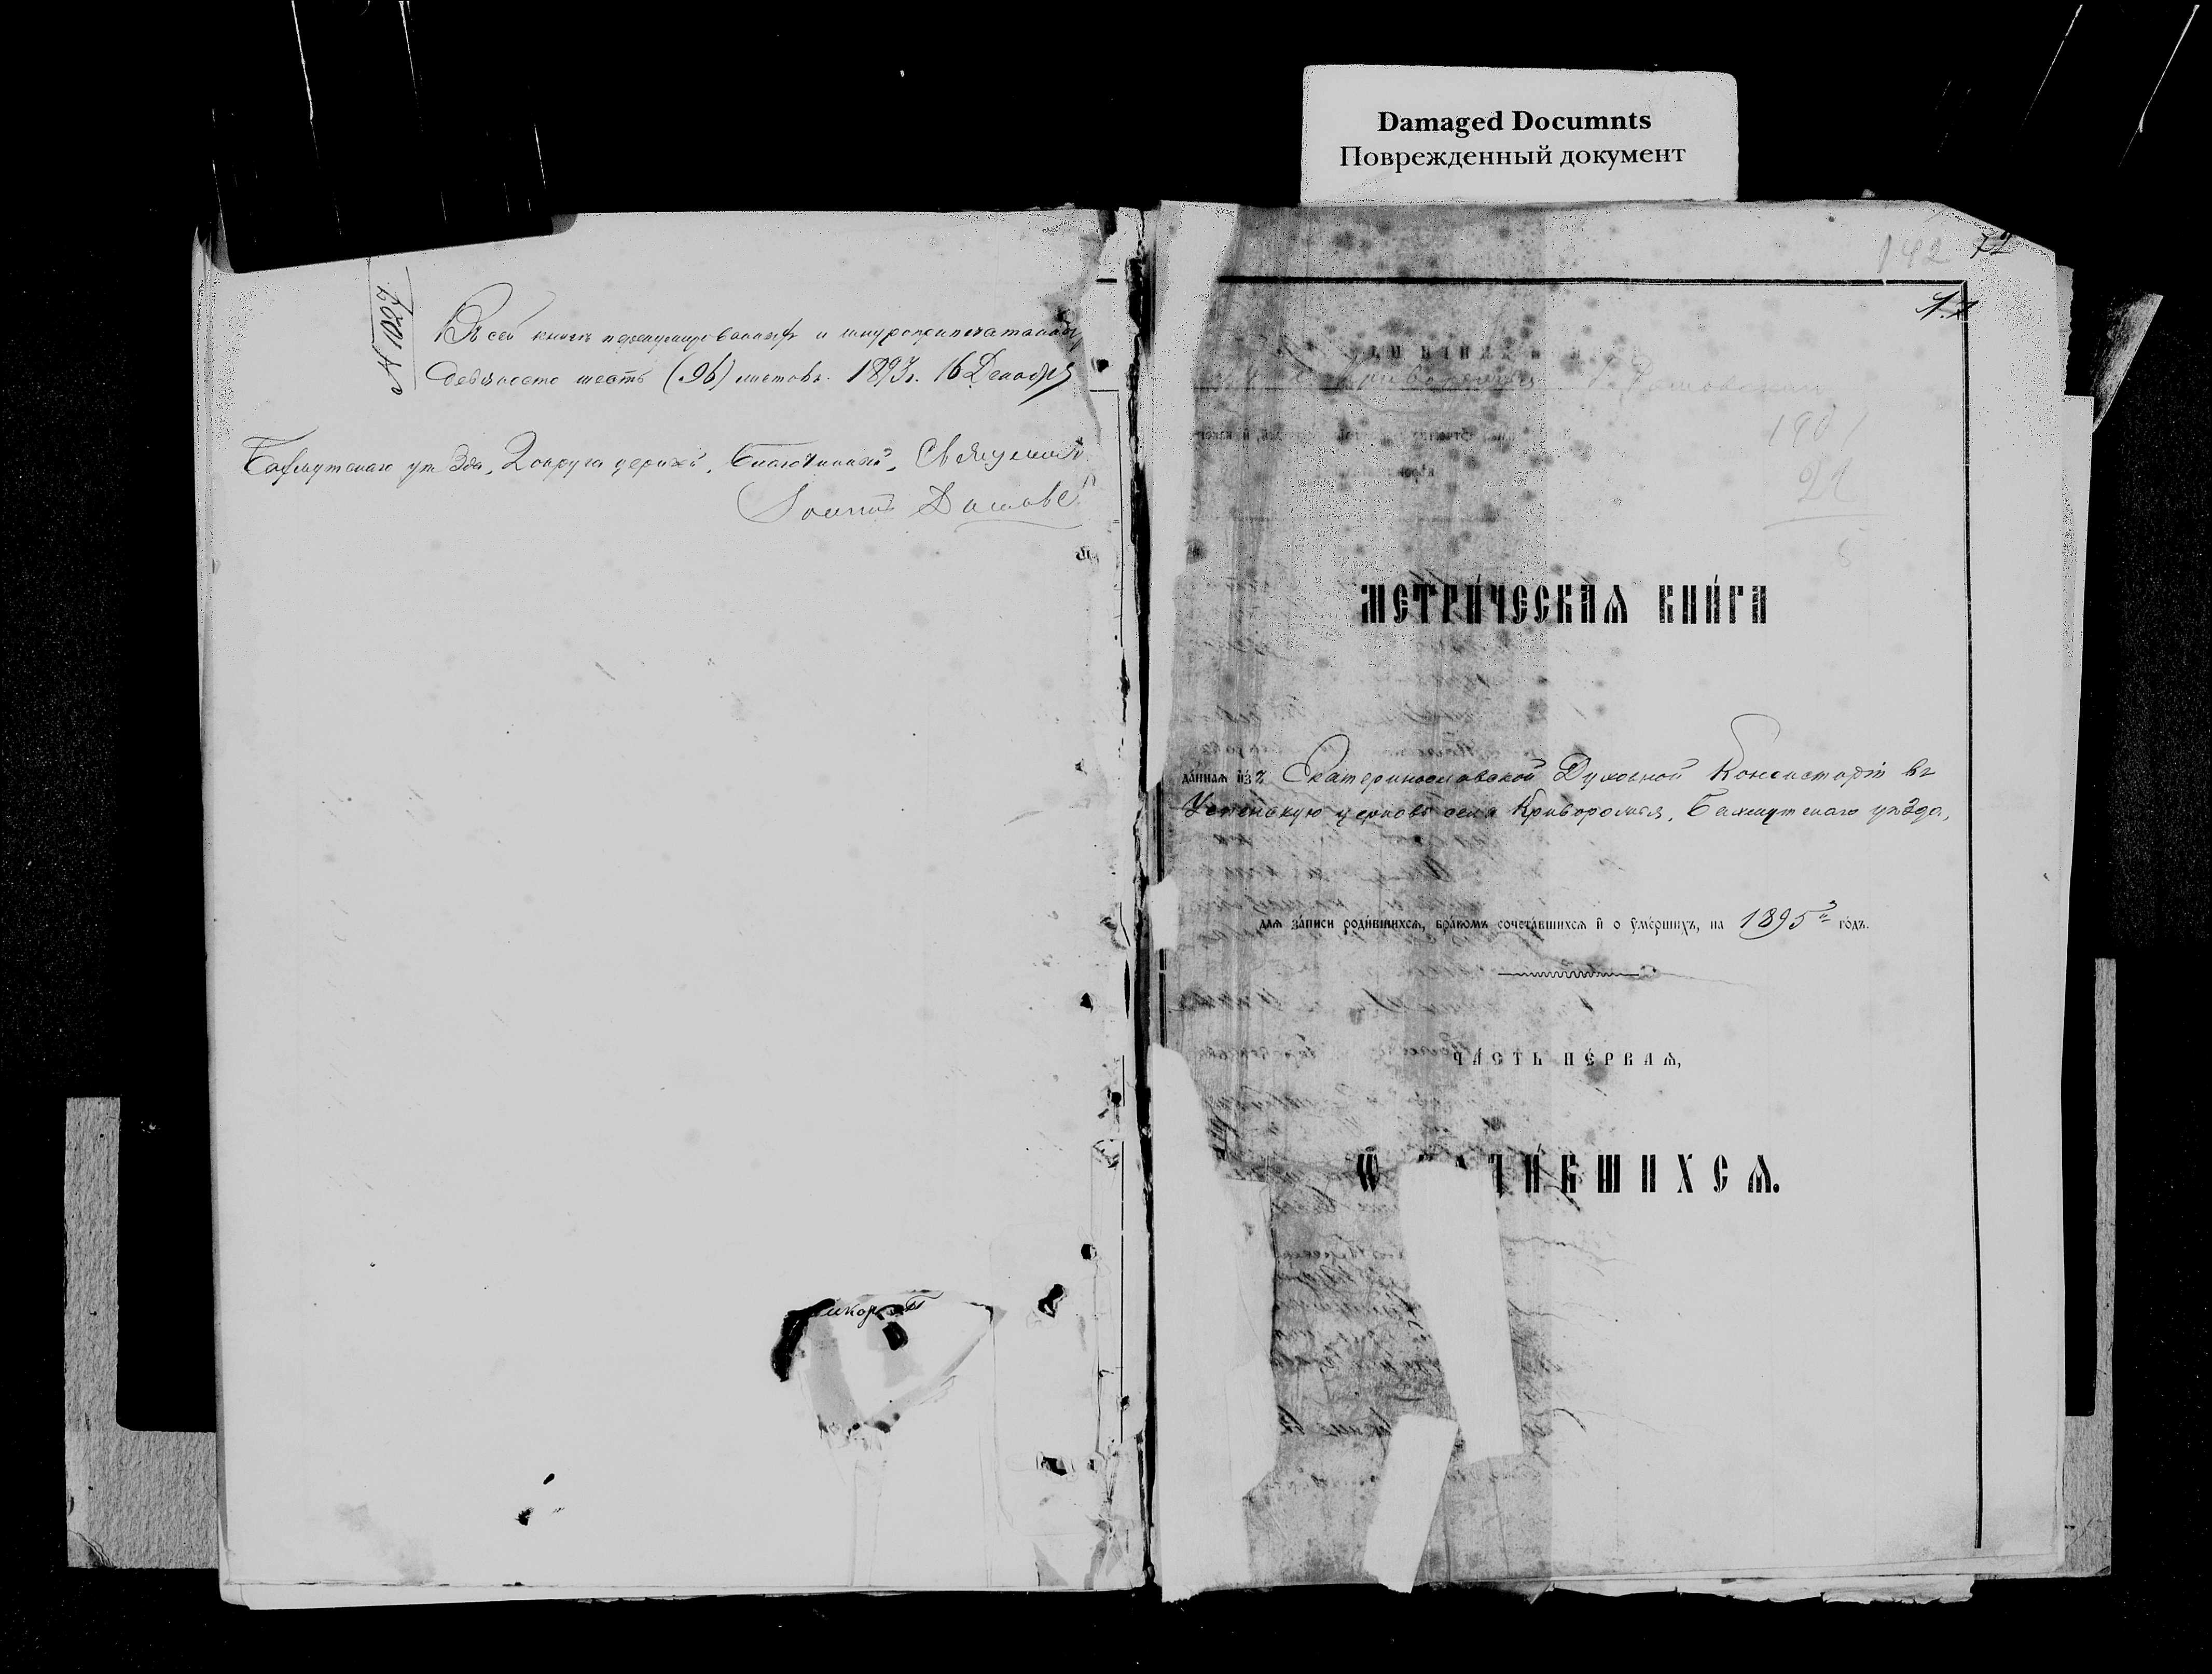 Damaged Documnts
Поврежденный документ
№ 1027
Въ сей книгѣ перенумерованныхъ и шнуроприпечатанныхъ
девяносто шесть (96) листовъ. 1893г. 16 Декабря
Бахмутскаго уѣзда, 2 округа церквей, Благочинный, Священникъ
Іоаннъ
142 72
МЕТРИ́ЧЕСКАѦ КНИ́ГА
да́ннаѧ и҆зъ Екатеринославской Духовной Консисторіи въ
Успенскую церковь села Криворожья, Бахмутскаго уѣзда,
длѧ за́писи роди́вшихсѧ, бра́комъ сочета́вшихсѧ и҆ о ᲂу҆ме́ршихъ, на 1895й го́дъ.
ЧА́СТЬ ПЕ́РВАѦ,
Ѿ ДИ́ВШИХСѦ.